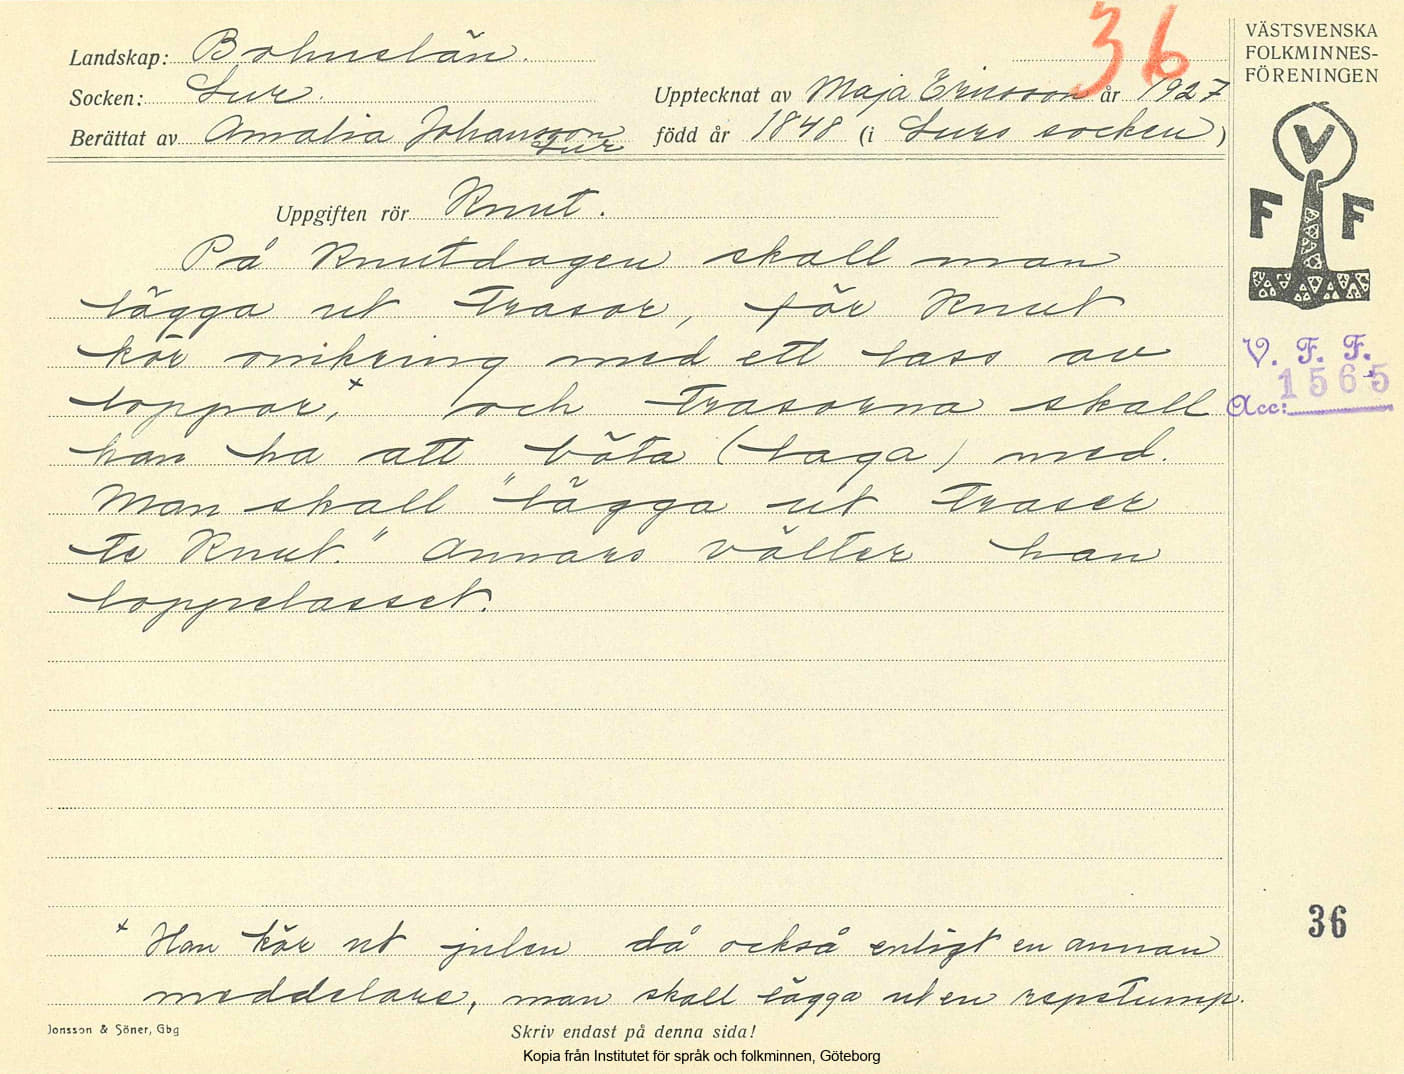 36
Landskap: Bohuslän.
Socken: Lur.
Upptecknat av Maja Ericsson år 1927
Berättat av Amalia Johansson
Lur
född år 1848 (i Lurs socken)
Uppgiften rör Knut.
På Knutdagen skall man
lägga ut trasor, för Knut
kör omkring med ett lass av
loppor,x och trasorna skall
han ha att böta (laga) med.
Man skall "lägga ut traser
te Knut." Annars välter han
loppelasset.
x Han kör ut julen då också enligt en annan
meddelare, man skall lägga ut en repstump.
Jonsson & Söner, Gbg
Skriv endast på denna sida!
Kopia från Institutet för språk och folkminnen, Göteborg
VÄSTSVENSKA
FOLKMINNES-
FÖRENINGEN
V
F F
V. F. F.
1565
Acc:
36